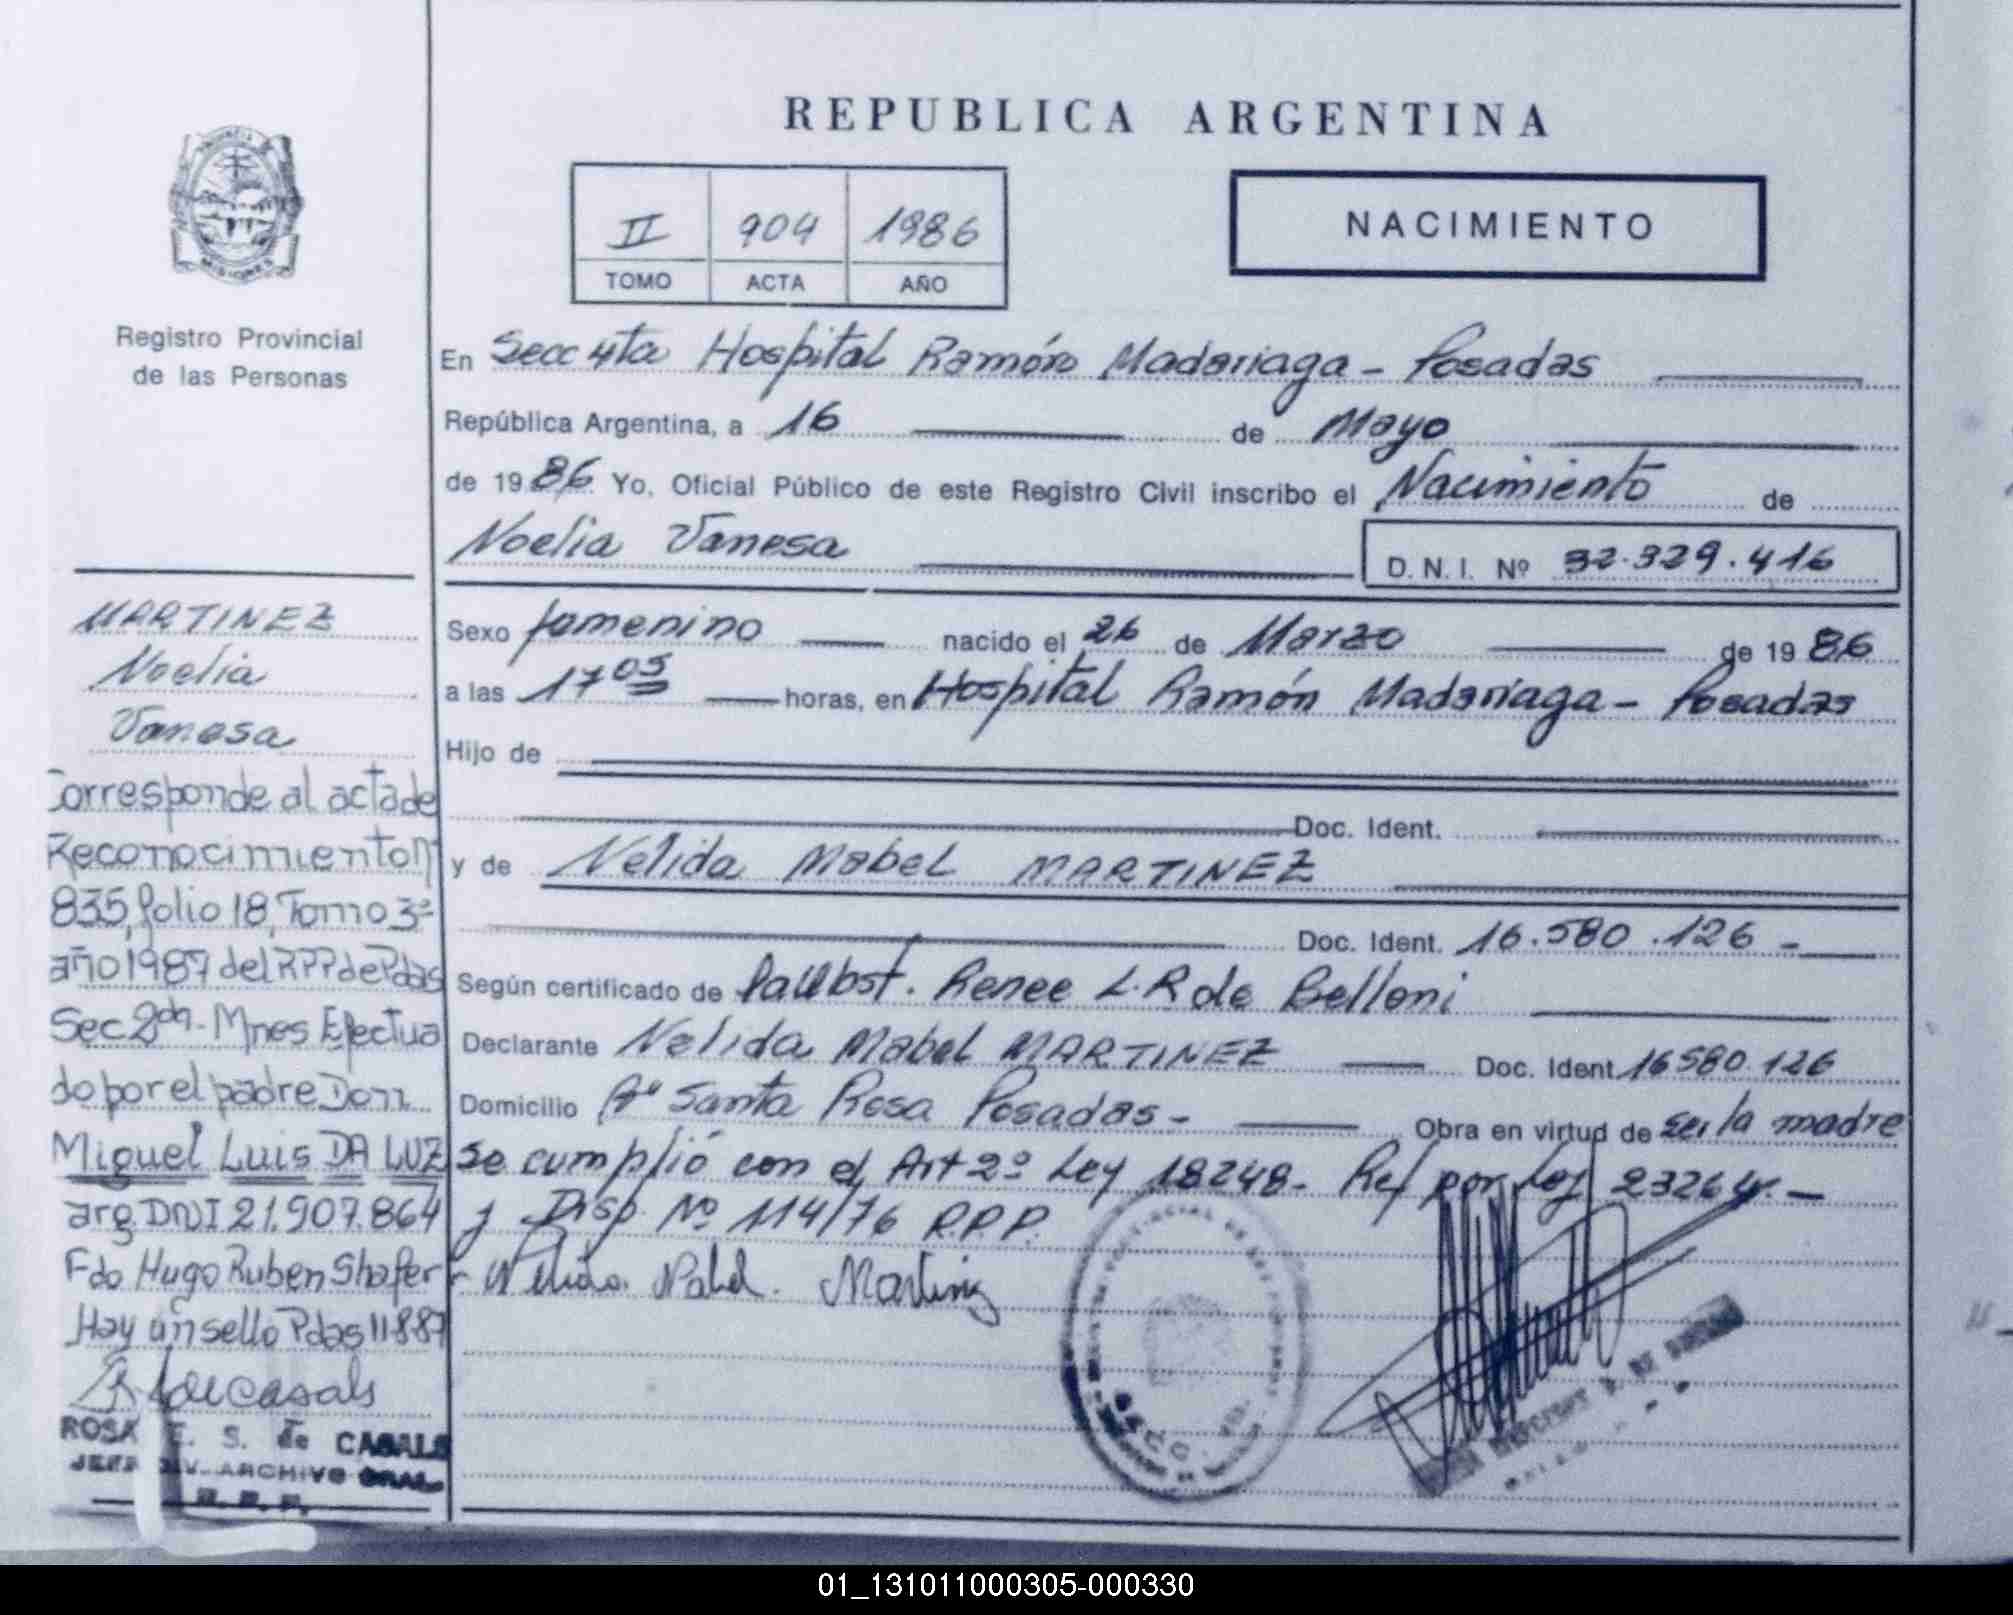 REPUBLICA ARGENTINA
II 904 1986
TOMO ACTA AÑO
NACIMIENTO
MISIONES
Registro Provincial
de las Personas
En Secc 4ta Hospital Ramón Madariaga - Posadas
República Argentina, a 16 de Mayo
de 1986 Yo, Oficial Público de este Registro Civil inscribo el Nacimiento de
Noelia Vanesa D.N.I. Nº 32.329.416
Sexo femenino nacido el 26 de Marzo de 1986
a las 17 05 horas, en Hospital Ramón Madariaga - Posadas
Hijo de
Doc. Ident.
y de Nelida Mabel MARTINEZ
Doc. Ident. 16.580.126 -
Según certificado de Renee L.R de Belloni
Declarante Nelida Mabel MARTINEZ Doc. Ident. 16580.126
Domicilio Santa Rosa Posadas - Obra en virtud de ser la madre
Se cumplió con el Art 2º Ley 18248 - Ref por Ley 23264. -
y Disp. Nº 114/76 R.P.P.
Nelida Mabel. Martinez
MARTINEZ
Noelia
Vanesa
Corresponde al acta de
Reconocimiento Nº
835, folio 18, Tomo 3º
año 1987 del RPP de Pdas
Sec 2da - Mnes Efectua
do por el padre Don
Miguel Luis DA LUZ
arg. DNI 21.907.864
Fdo Hugo Ruben Shafer
Hay un sello Pdas 11887
de Casals
ROSA E. S. de CASALS
JEFA DIV. ARCHIVO GRAL.
R. P. P.
01_131011000305-000330